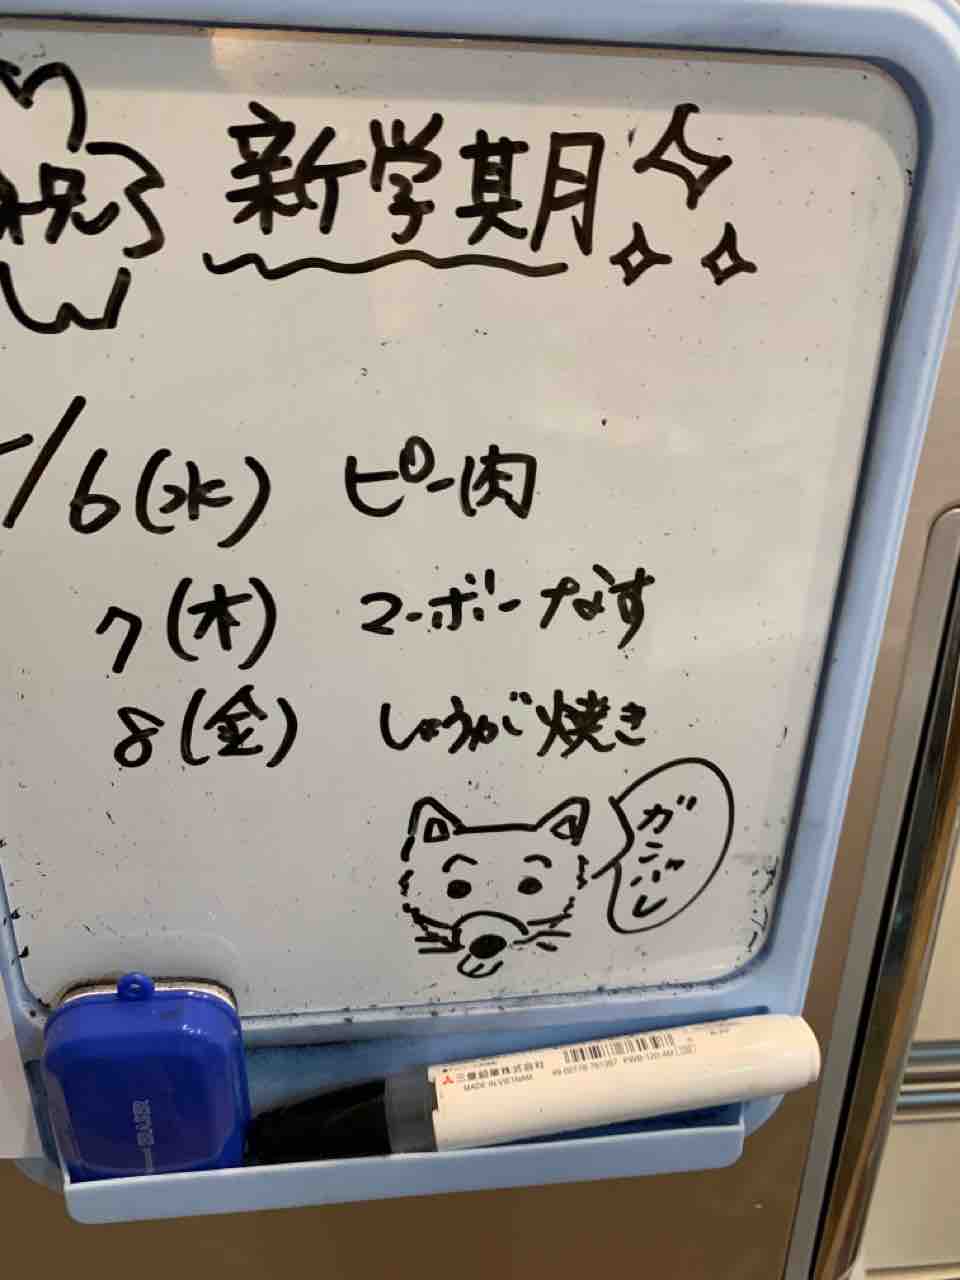 祝 新学期
/6(水) ピー肉
7(木) マーボーなす
8(金) しょうが焼き
ガンバレ
三菱鉛筆株式会社
MADE IN VIETNAM
PWB-120-4M
ERASER